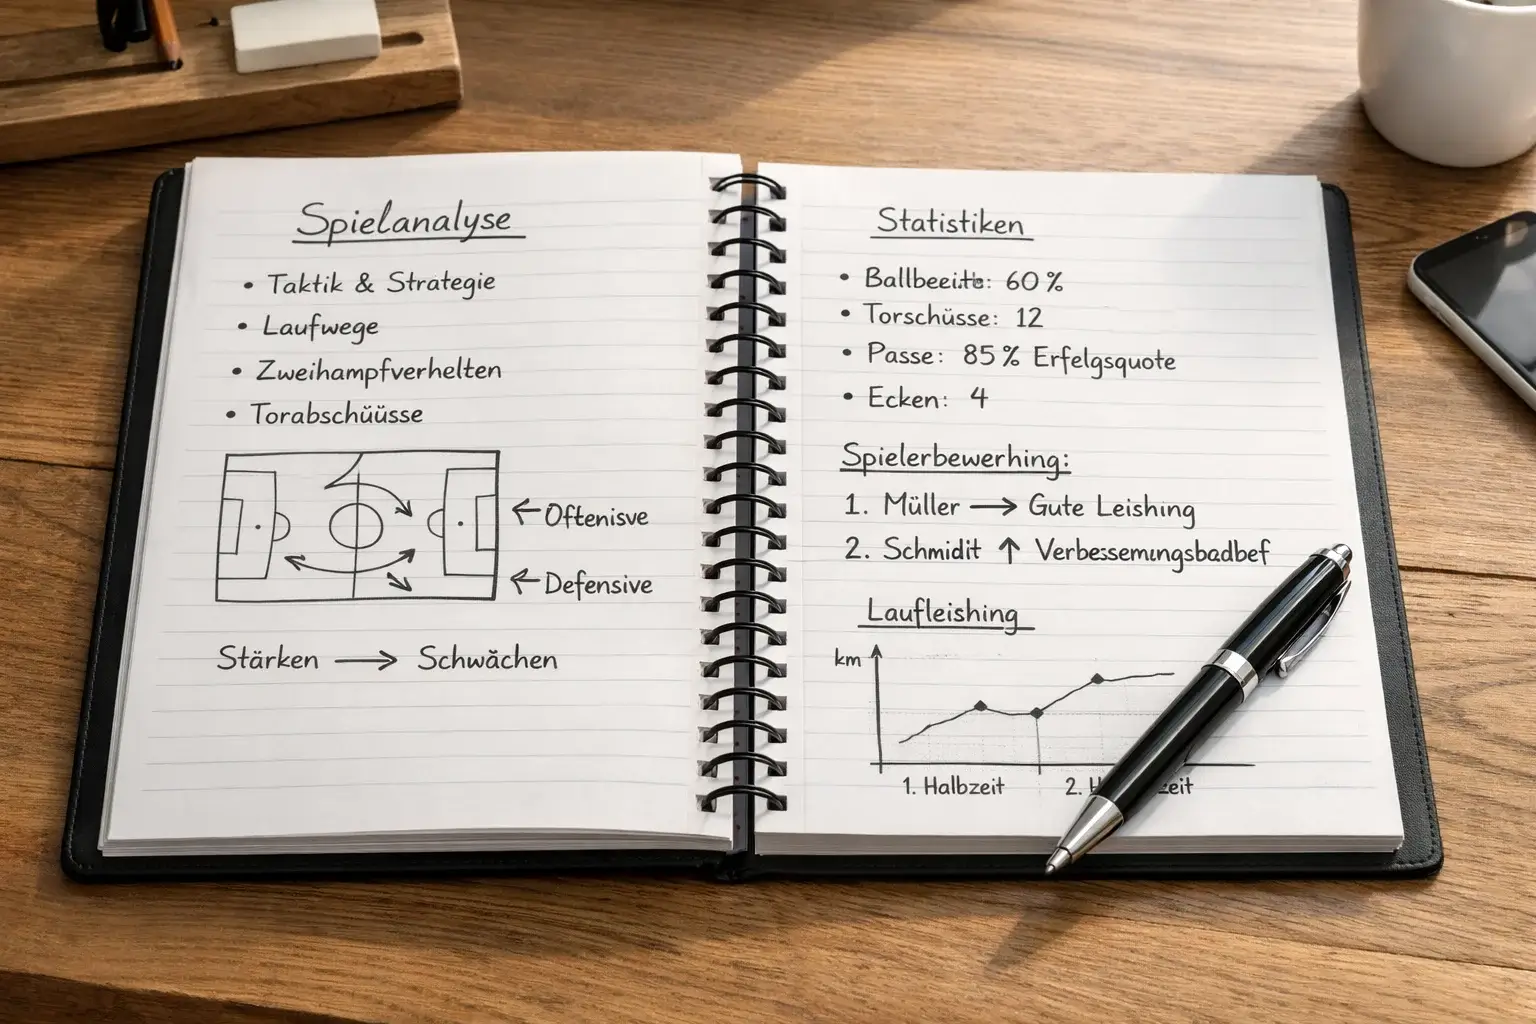 Spielanalyse
• Taktik & Strategie
• Laufwege
• Zweihampfverhelten
• Torabschüüsse
← Oftenisve
← Defensive
Stärken → Schwächen
Statistiken
• : 60 %
• Torschüsse: 12
• Passe: 85 % Erfelgsquote
• Ecken: 4
Spielerbewerhing:
1. Müller → Gute Leishing
2. Schmidit ↑ Verbessemungsbadbef
Laufleishing
km
1. Halbzeit
2.